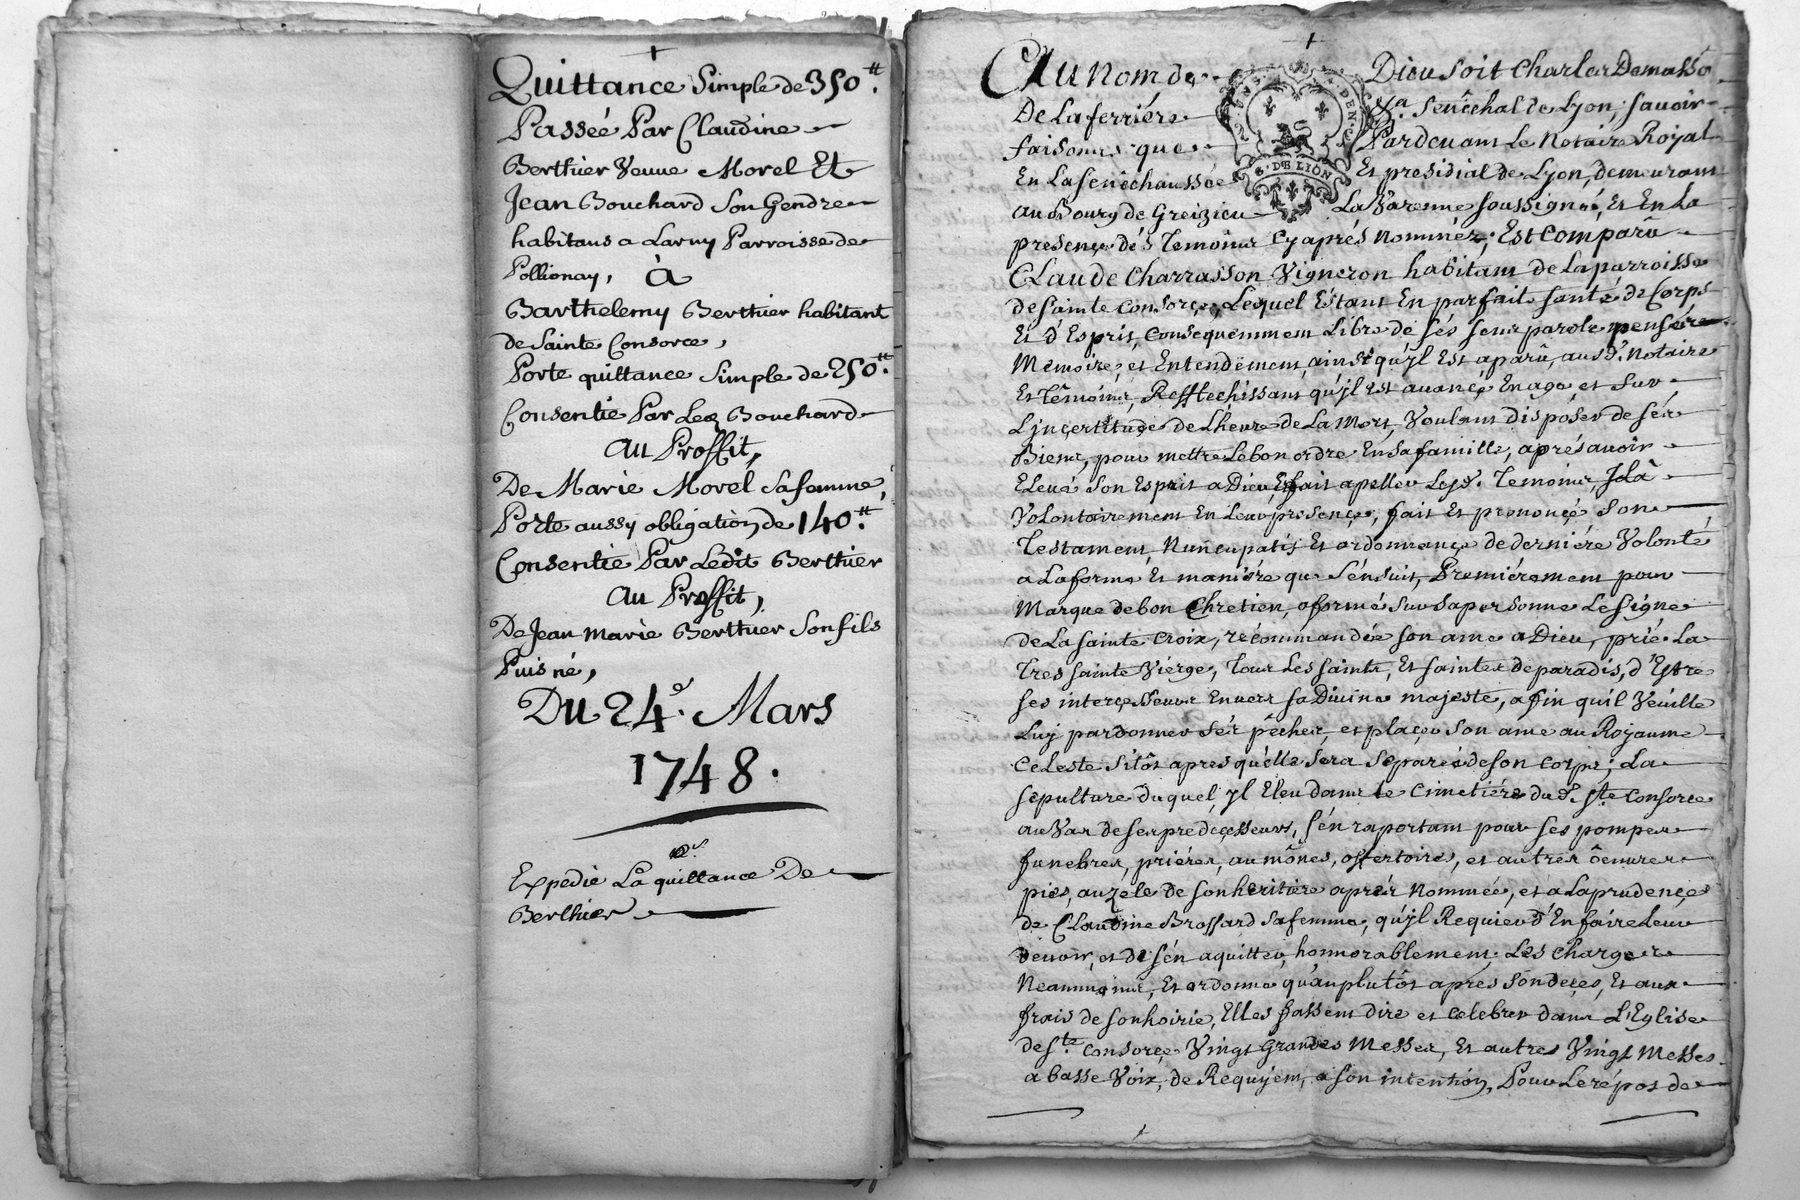 Quittance Simple de 350.tt
Passée Par Claudine
Berthier Veuve Morel Et
Jean Bouchard Son Gendre
habitans a Larny Parroisse de
Pollionay, à
Barthelemy Berthier habitant
de Sainte Consorce,
Porte quittance Simple de 250.tt
Consentie Par Led Bouchard
Au Proffit,
De Marie Morel Sa femme,
Porte aussy obligation de 140.tt
Consentie Par Ledit Berthier
Au Proffit,
De Jean Marie Berthier Son fils
Puis né,
Du 24.e Mars
1748.
Expedié La quittance De
Berthier
Au Nom de Dieu soit Charles De massô
De La ferriére Senêchal de Lyon, savoir
faisons que Pardevant Le Notaire Royal
En La senêchaussée Et presidial de Lyon, demeurant
au Bourg de Greizieu La Varenne soussigné, Et En La
presençe dés Temoins Cy aprés Nommés; Est Comparû
CLaude Charrasson Vigneron habitant de La parroisse
de sainte Consorçe, Lequel Estant En parfaite santé de Corps
Et d'Esprit, Consequemment Libre de sés sens parole pensée
Memoire, et Entendëment, ainsi qu'yl Est aparû, aus d. Notaire
Et Têmoins, Refflechissant qu'yl Est avançé En age et sur
L'jnçertitude de L'heure de La Mort, Voulant dispóser de sés
Biens, pour mettre Le bon ordre En sa famille, aprés avoir
Elevé Son Esprit a Dieu, Et fait apeller Lesd. Temoins, JL à
Volontairement En Leur presençe, fait Et prononçé Son
Testament Nunçupatif Et ordonnançe de derniére Volonté
a La forme Et maniére que S'énsuit, Premiérement pour
Marque de bon Chretien, a formé sur sa personne Le signe
de La sainte Croix, récommandée son ame a Dieu, prié La
Tres sainte Viérge, Tous Les saints, Et saintes de paradis, d'Estre
ses interçesseurs Envers sa Divine majesté, afin qu'il Véuille
Luy pardonner sés pêchés, et plaçer son ame au Royaume
CeLeste sitôt apres qu'élle sera séparée de son Corps; La
sepulture duquel, yl Eleu dans Le Cimetiére dud. Ste Consorce
au Vas de ses predeçesseurs, s'én raportant pour ses pompes
funebres, priéres, aumônes, offertoires, et autres ôeuvres
pies, au zele de son heritiére aprés Nommée, et a La prudençe
de CLaudine Brossard sa femme, qu'yl Requiert d'En faire Leur
devoir, et de s'én aquitter, honnorablement. Les Charge
Neanmoins, Et ordonne qu'au plutôt aprés son deçes, Et aux
frais de son hoirie, ELles fassent dire et célebrer dans L'Eglise
de Ste. Consorçe Vingt Grandes Messes, Et autres Vingt Messes
a basse Voix, de Requiem, a son intention, Pour Le répos de